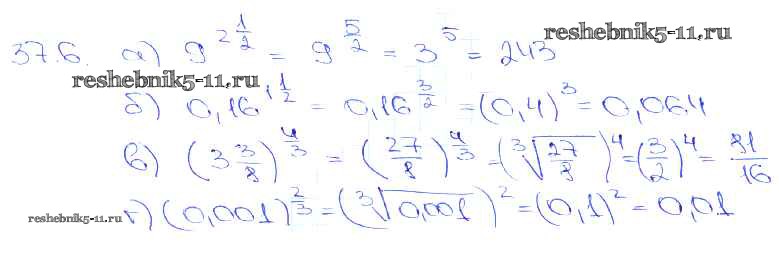 37.6. а) 9^{2\frac{1}{2}} = 9^{\frac{5}{2}} = 3^5 = 243
reshebnik5-11.ru
reshebnik5-11.ru
б) 0,16^{1\frac{1}{2}} = 0,16^{\frac{3}{2}} = (0,4)^3 = 0,064
в) (3\frac{3}{8})^{\frac{4}{3}} = (\frac{27}{8})^{\frac{4}{3}} = (\sqrt[3]{\frac{27}{8}})^4 = (\frac{3}{2})^4 = \frac{81}{16}
reshebnik5-11.ru
г) (0,001)^{\frac{2}{3}} = (\sqrt[3]{0,001})^2 = (0,1)^2 = 0,01